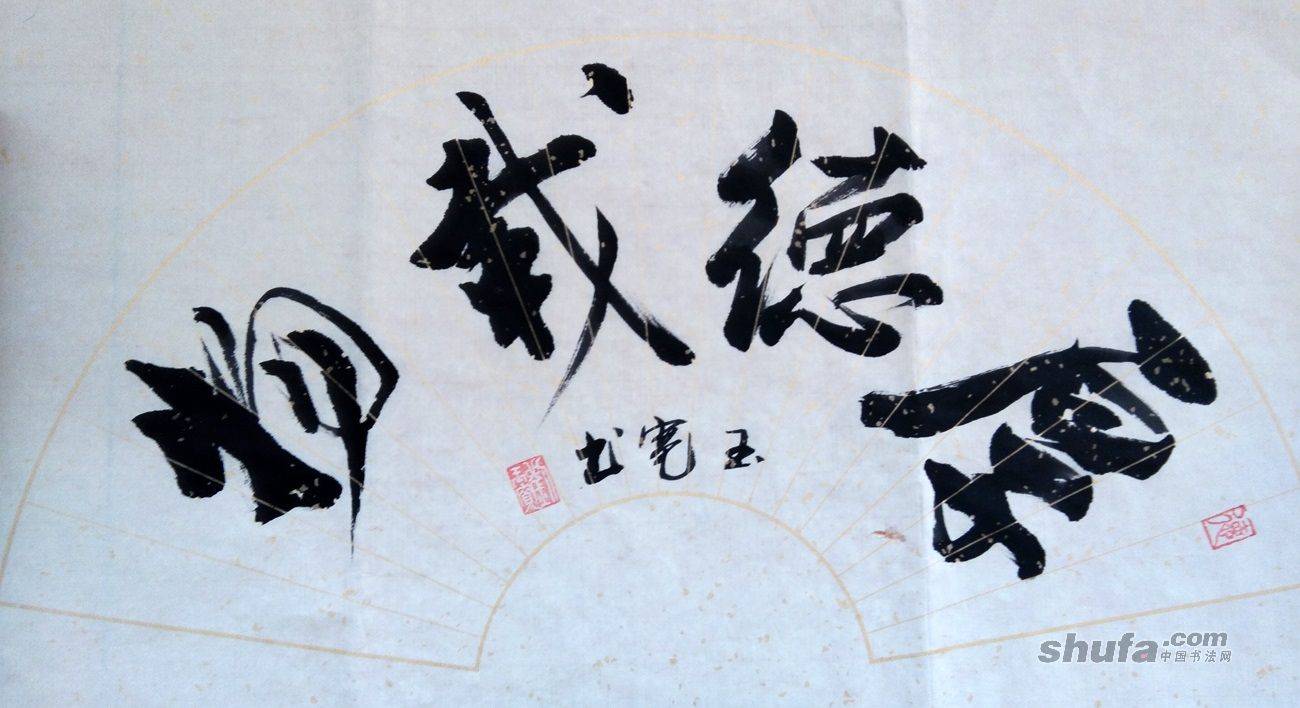 厚德載物
玉宽书
shufa.com
中国书法网